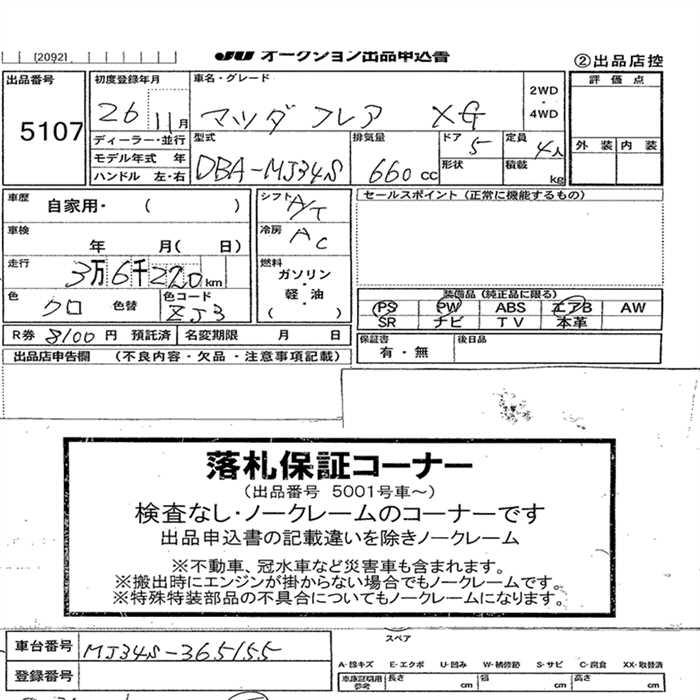 [2092]
JU オークション出品申込書
②出品店控
出品番号 5107
初度登録年月 26 11月
車名・グレード マツダ フレア XG
2WD・4WD
評価点
ディーラー・並行
モデル年式 年
ハンドル 左・右
型式 DBA-MJ34S
排気量 660 cc
ドア 5
形状
定員 4人
積載 kg
外装 内装
車歴 自家用・( )
シフト A/T
セールスポイント (正常に機能するもの)
車検 年 月( 日)
冷房 AC
走行 3万6千220km
燃料 ガソリン・軽・油 ( )
色 クロ 色替
色コード ZJ3
装備品 (純正品に限る)
PS PW ABS エアB AW
SR ナビ TV 本革
R券 8100円 預託済 名変期限 月 日
保証書 有・無
後日品
出品店申告欄 (不良内容・欠品・注意事項記載)
落札保証コーナー
(出品番号 5001号車～)
検査なし・ノークレームのコーナーです
出品申込書の記載違いを除きノークレーム
※不動車、冠水車など災害車も含まれます。
※搬出時にエンジンが掛からない場合でもノークレームです。
※特殊特装部品の不具合についてもノークレームになります。
車台番号 MJ34S-365155
スペア
A-線キズ E-エクボ U-凹み W-補修跡 S-サビ C-腐食 XX-取替済
登録番号
車検証明用参考 長さ cm 幅 cm 高さ cm